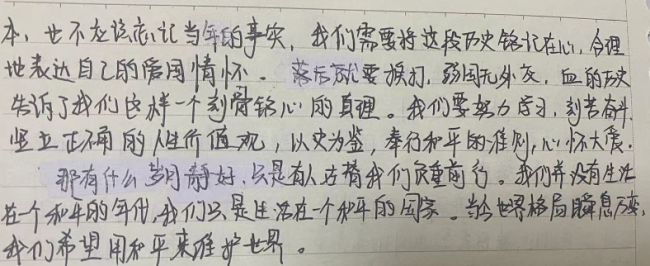 本，也不应该忘记当年的事实，我们需要将这段历史铭记在心，合理
地表达自己的爱国情怀。落后就要挨打，弱国无外交，血的历史
告诉了我们这样一个刻骨铭心的真理。我们要努力学习，刻苦奋斗，
坚立正确的人生价值观，以史为鉴，奉行和平的准则，心怀大爱。
那有什么岁月静好，只是有人在替我们负重前行。我们并没有生活
在一个和平的年代，我们只是生活在一个和平的国家。当今世界格局瞬息万变，
我们希望用和平来维护世界。